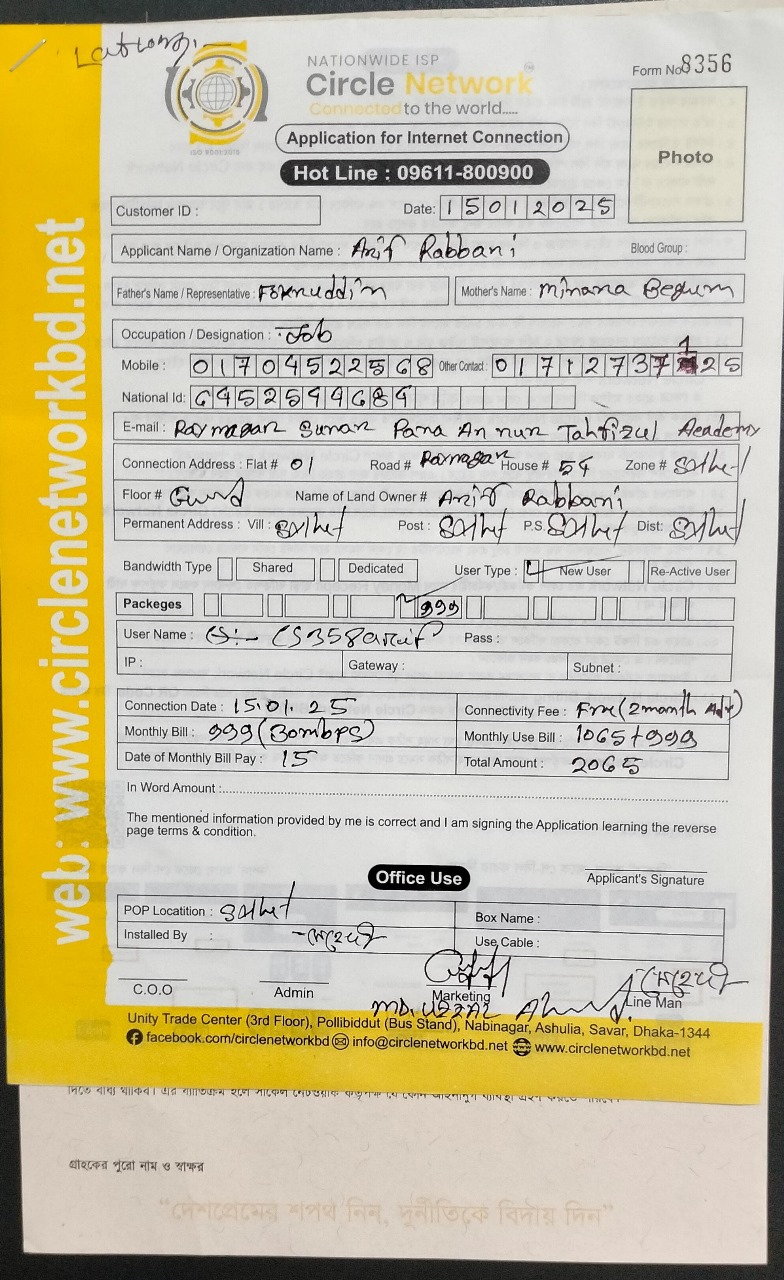 NATIONWIDE ISP
Circle Network
Connected to the world.....
ISO 9001:2015
Form No 8356
Application for Internet Connection
Hot Line : 09611-800900
Photo
Customer ID :
Date: 15012025
Applicant Name / Organization Name : Arif Rabbani
Blood Group :
Father's Name / Representative : Fokruddin
Mother's Name : Minara Begum
Occupation / Designation : Job
Mobile : 01704522568 Other Contact : 01712737125
National Id:
E-mail : Para An nur Tahfizul Academy
Connection Address : Flat # 01 Road # House # 54 Zone #
Floor # Name of Land Owner # Arif Rabbani
Permanent Address : Vill : Post : P.S. Dist:
Bandwidth Type Shared Dedicated User Type : New User Re-Active User
Packeges 999
User Name : CS358arif Pass :
IP : Gateway : Subnet :
Connection Date : 15.01.25 Connectivity Fee : Free (2 month Adv)
Monthly Bill : 999 (30mbps) Monthly Use Bill : 1065+999
Date of Monthly Bill Pay : 15 Total Amount : 2065
In Word Amount :
The mentioned information provided by me is correct and I am signing the Application learning the reverse
page terms & condition.
Office Use
Applicant's Signature
POP Locatition :
Box Name :
Installed By : মেহেদী
Use Cable :
মেহেদী
C.O.O Admin Marketing Line Man
Unity Trade Center (3rd Floor), Pollibiddut (Bus Stand), Nabinagar, Ashulia, Savar, Dhaka-1344
facebook.com/circlenetworkbd info@circlenetworkbd.net www.circlenetworkbd.net
web: www.circlenetworkbd.net
গ্রাহকের পুরো নাম ও স্বাক্ষর
“দেশপ্রেমের শপথ নিন, দুর্নীতিকে বিদায় দিন”